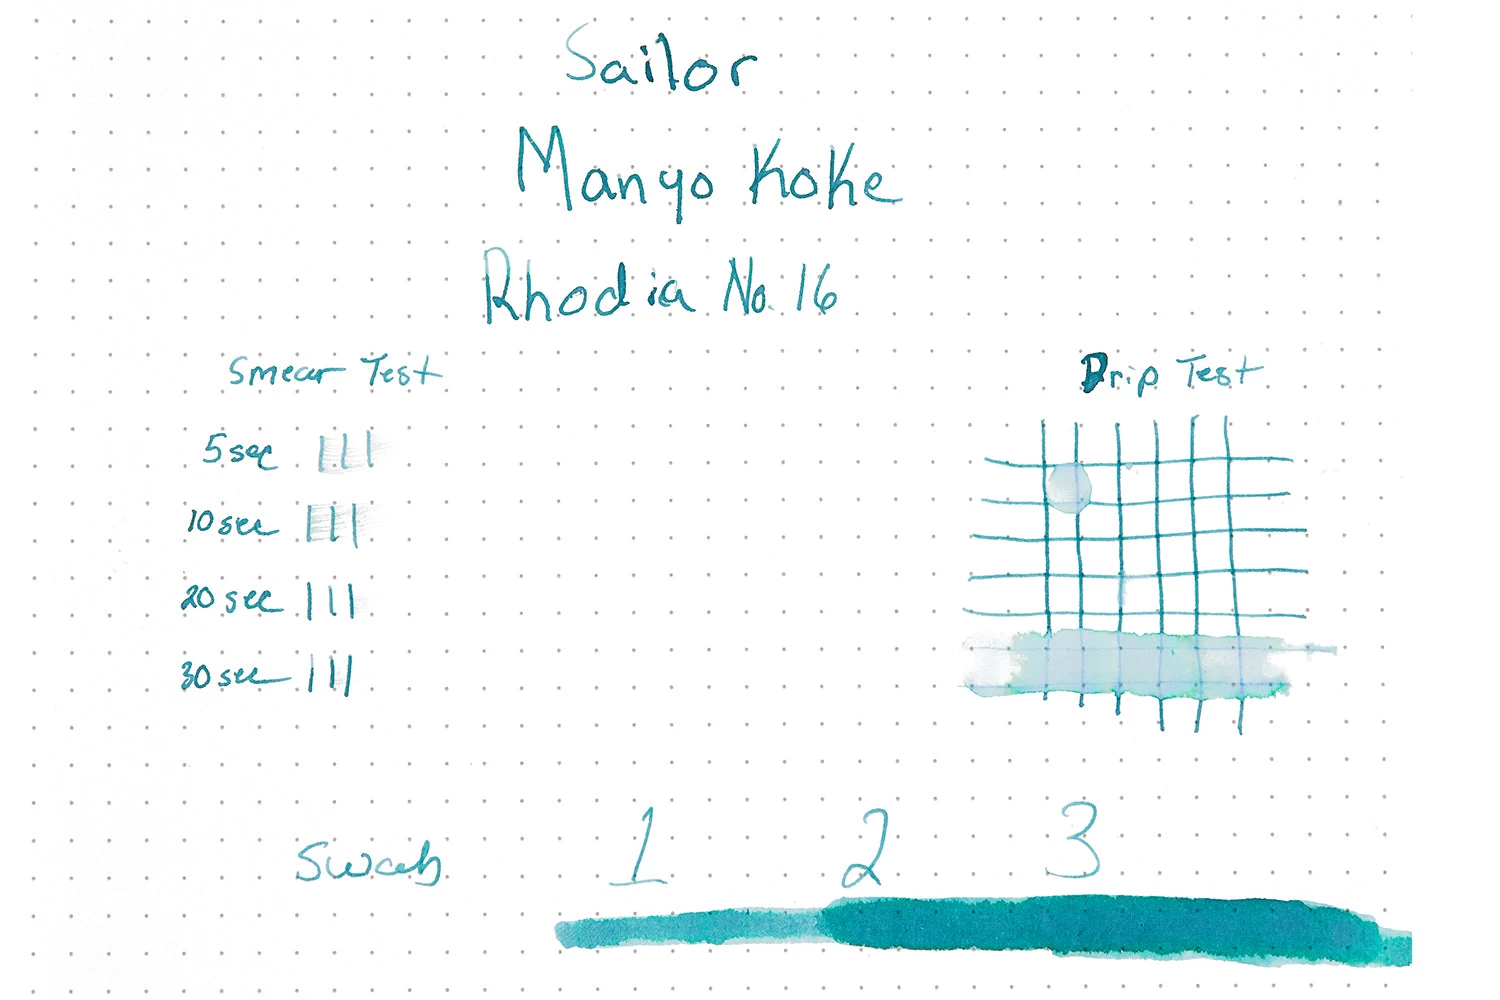 Sailor
Manyo Koke
Rhodia No. 16
Smear Test
Drip Test
5 sec
10 sec
20 sec
30 sec
Swab
1 2 3